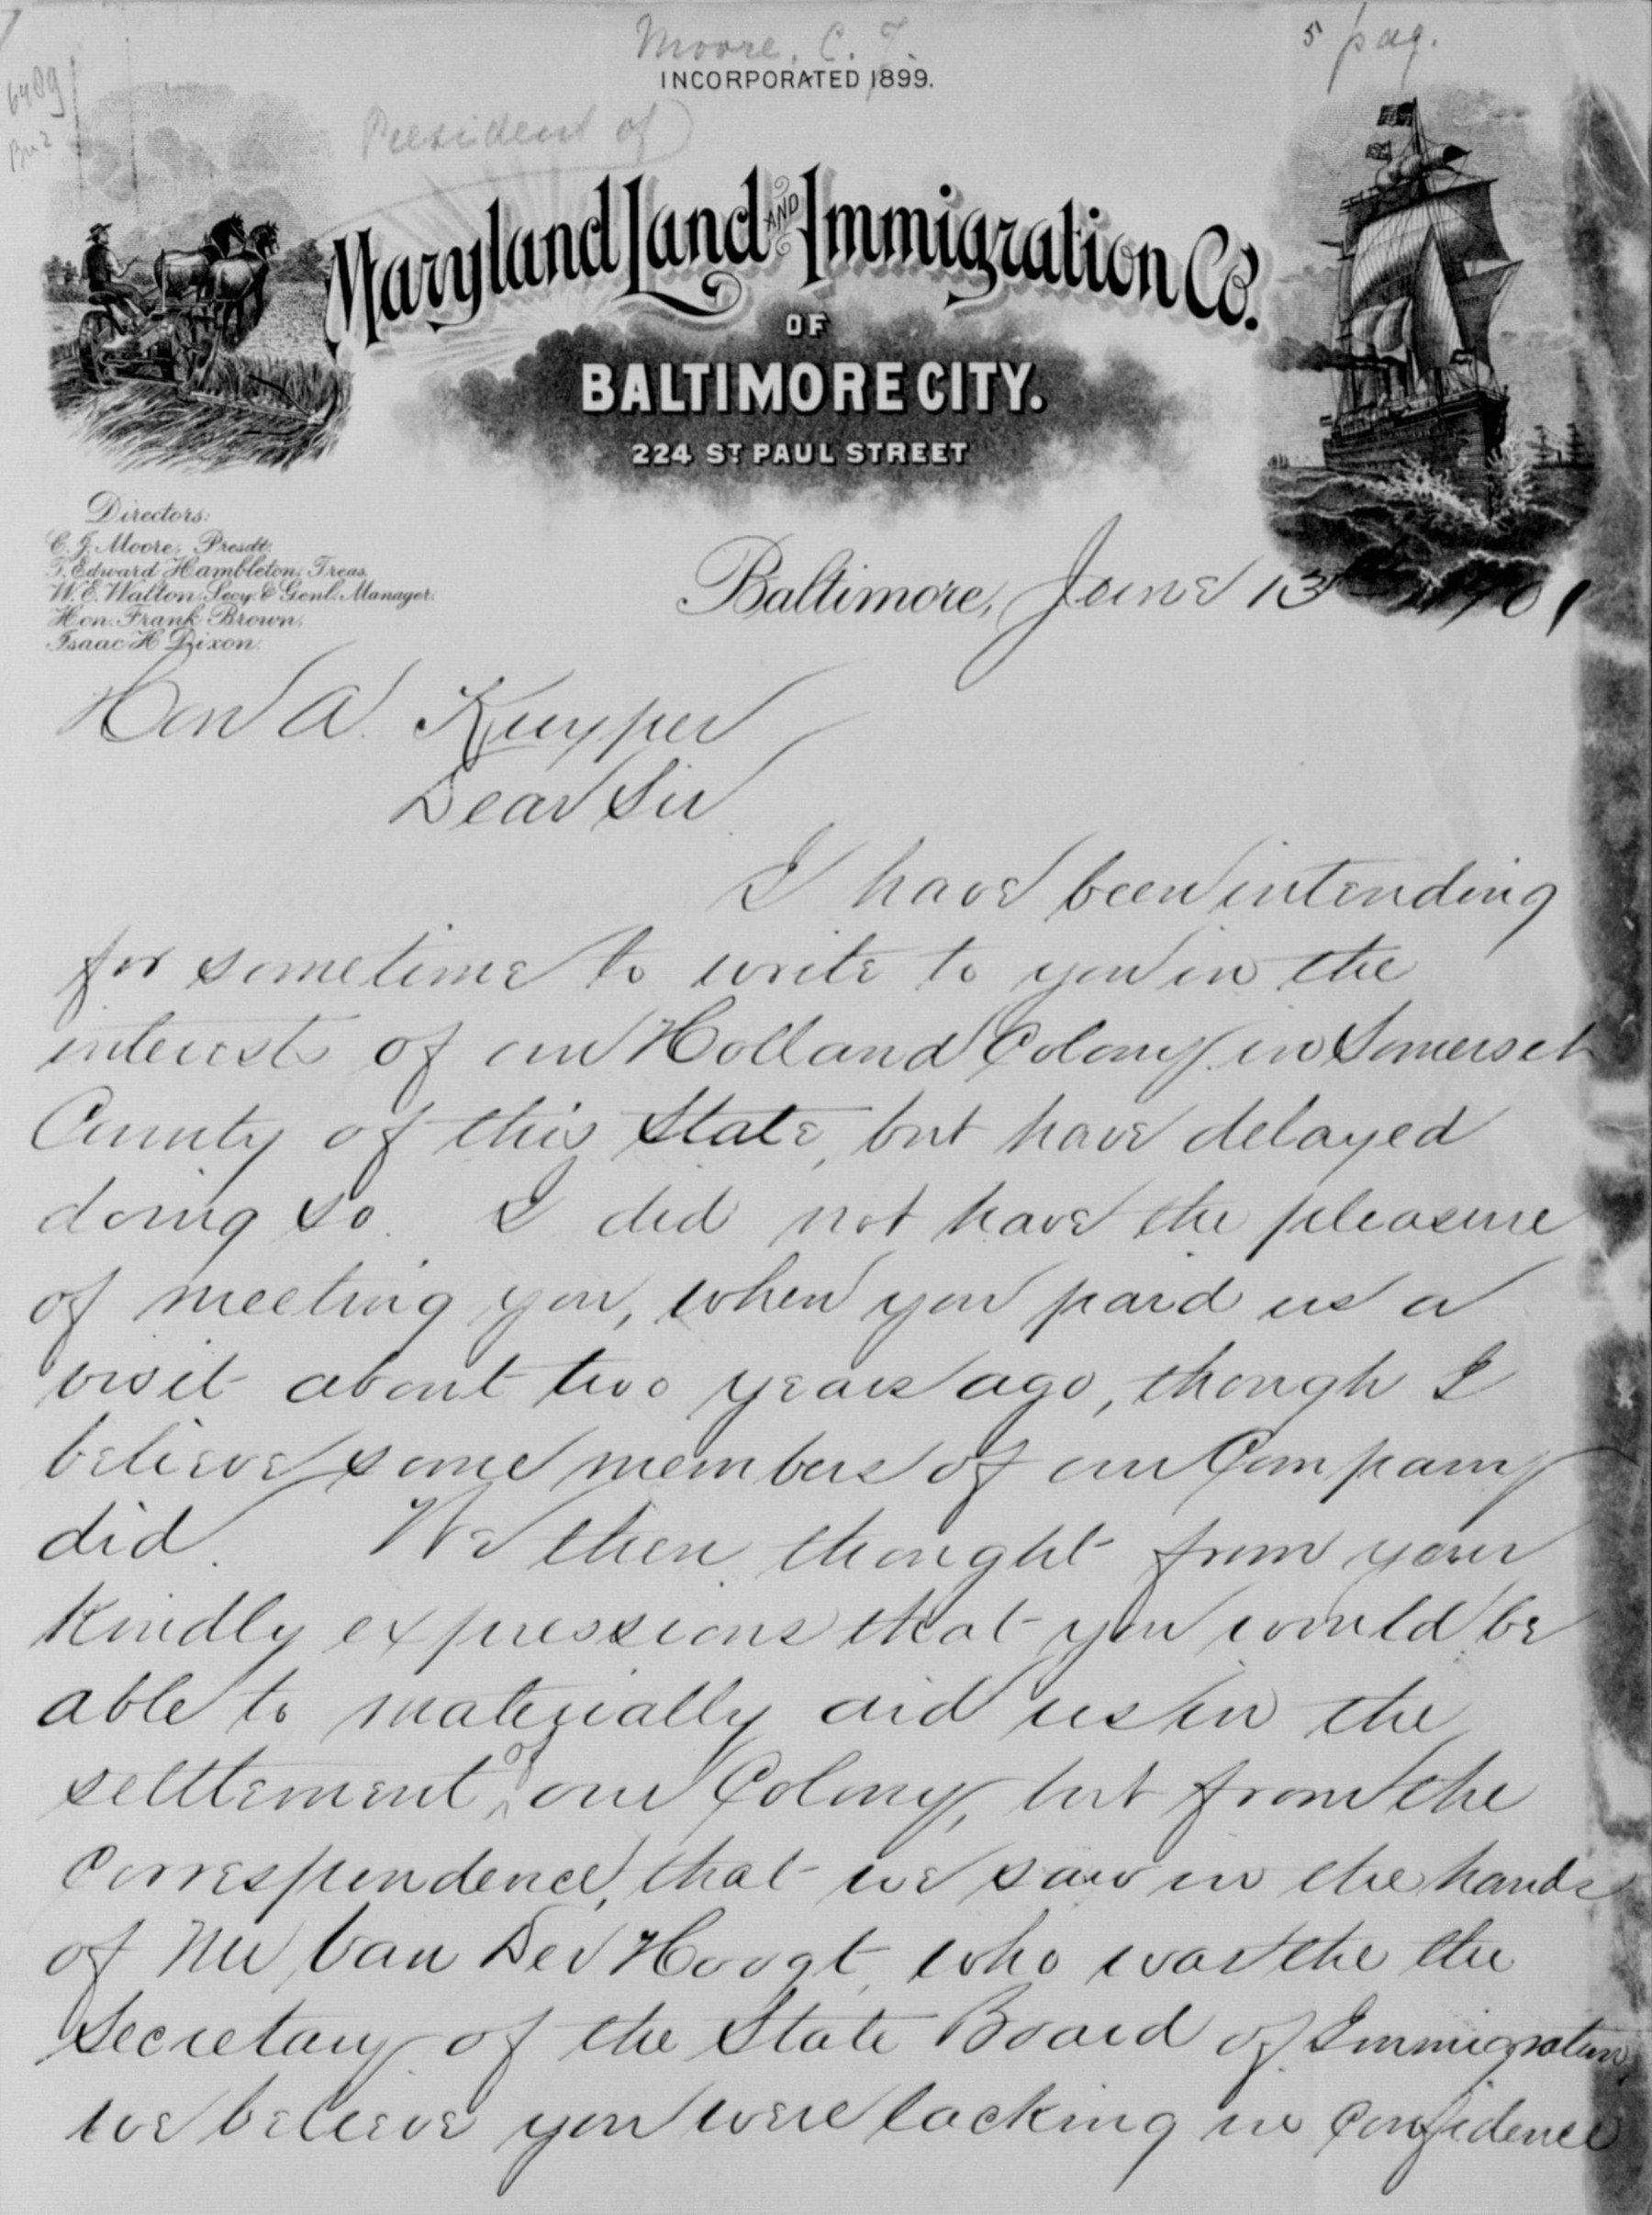 Moore, C. J.
5 pag.
6489
INCORPORATED 1899.
President of
Maryland Land AND Immigration Co.
OF
BALTIMORE CITY.
224 ST PAUL STREET
Directors:
C. J. Moore, Presdt.
T. Edward Hambleton, Treas.
W. E. Walton, Secy. & Genl. Manager.
Hon. Frank Brown,
Isaac H. Dixon.
Baltimore, June 13 1901
Hon A. Kuyper
Dear Sir
I have been intending
for sometime to write to you in the
interests of our Holland Colony in Somerset
County of this State, but have delayed
doing so. I did not have the pleasure
of meeting you, when you paid us a
visit about two years ago, though I
believe some members of our Company
did. We then thought from your
kindly expressions that you would be
able to materially aid us in the
settlement of our Colony, but from the
correspondence, that we saw in the hands
of Mr Van Der Hoogt, who was the the
Secretary of the State Board of Immigration,
we believe you were lacking in confidence